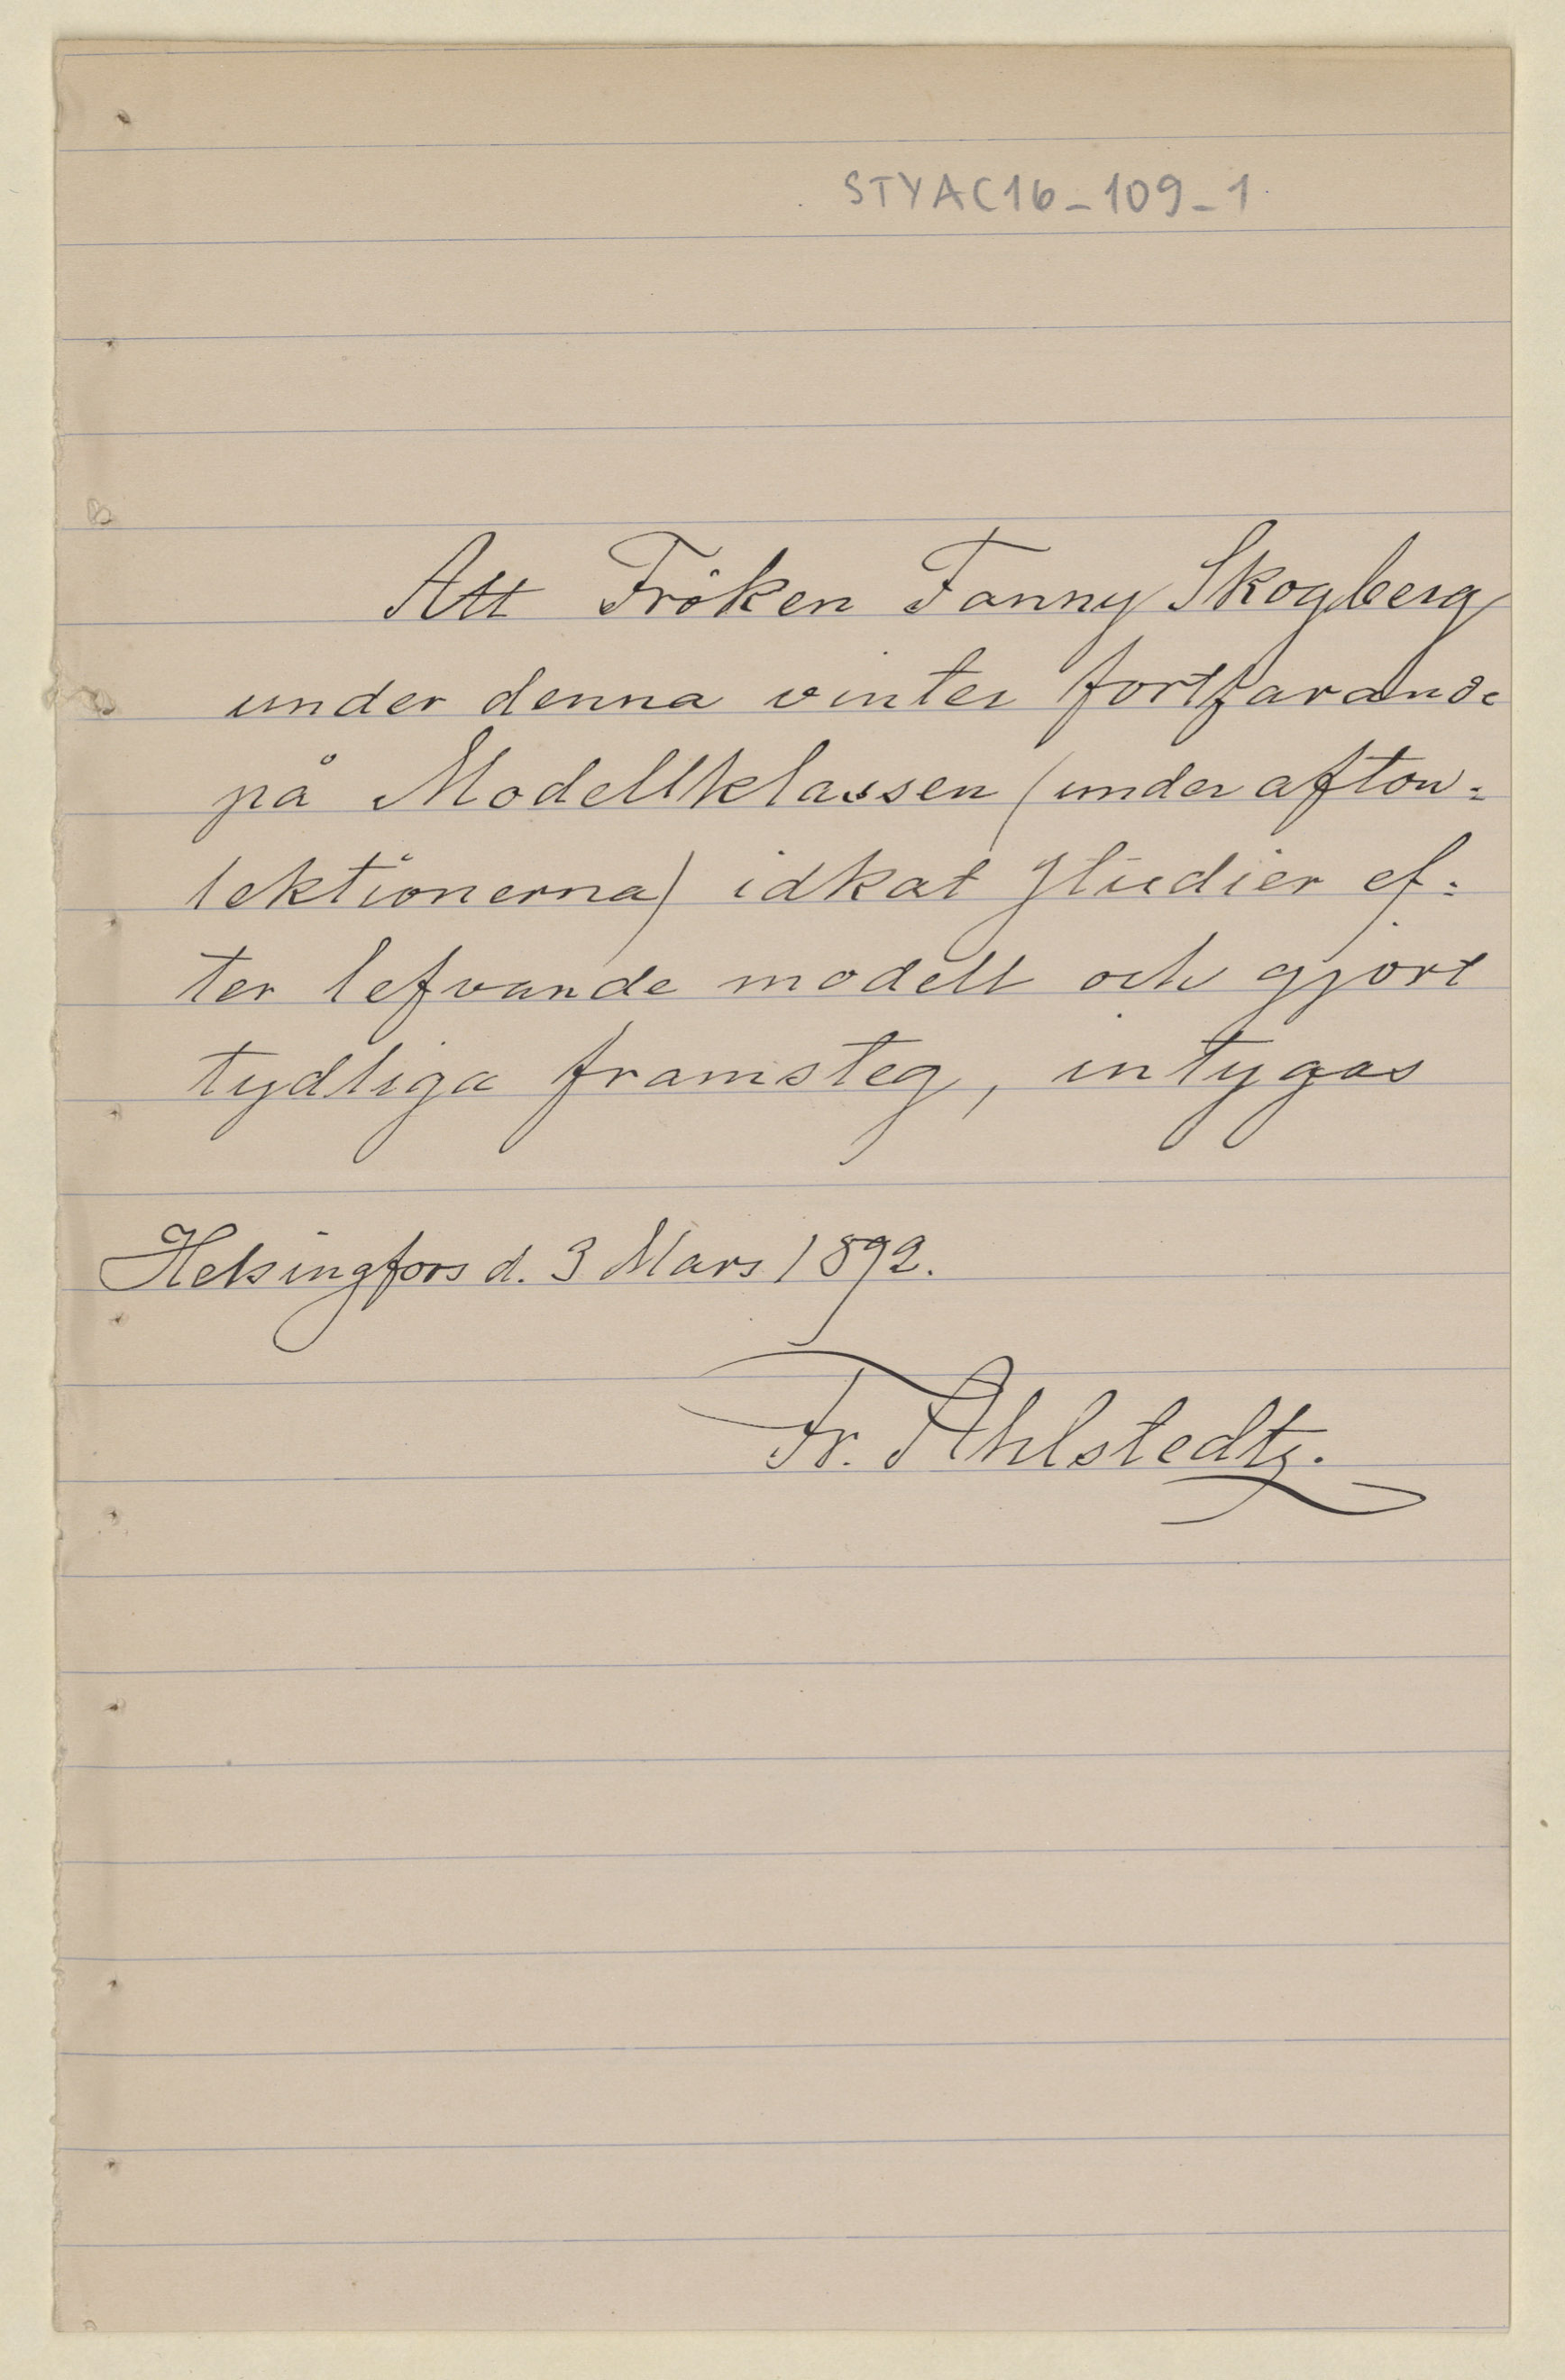 STYAC16-109-1
Att Fröken Fanny Skogberg
under denna vinter fortfarande
på Modellklassen (under afton=
lektionerna) idkat studier ef=
ter lefvande modell och gjort
tydliga framsteg, intygas
Helsingfors d. 3 Mars 1892.
Fr. Ahlstedt.